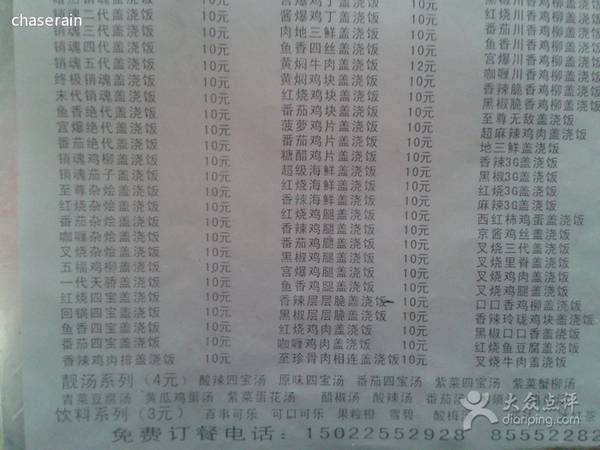 chaserain
销魂二代盖浇饭 10元
销魂三代盖浇饭 10元
销魂四代盖浇饭 10元
销魂五代盖浇饭 10元
终极销魂盖浇饭 10元
末代销魂盖浇饭 10元
鱼香绝代盖浇饭 10元
宫爆绝代盖浇饭 10元
番茄绝代盖浇饭 10元
销魂鸡柳盖浇饭 10元
销魂茄子盖浇饭 10元
至尊杂烩盖浇饭 10元
红烧杂烩盖浇饭 10元
番茄杂烩盖浇饭 10元
咖喱杂烩盖浇饭 10元
叉烧杂烩盖浇饭 10元
五福鸡柳盖浇饭 10元
一代天骄盖浇饭 10元
红烧四宝盖浇饭 10元
回锅四宝盖浇饭 10元
鱼香四宝盖浇饭 10元
番茄四宝盖浇饭 10元
香辣鸡肉排盖浇饭 10元
宫爆鸡丁盖浇饭 10元
酱爆鸡丁盖浇饭 10元
肉地三鲜盖浇饭 10元
鱼香四丝盖浇饭 10元
黄焖牛肉盖浇饭 12元
黄焖鸡块盖浇饭 10元
红烧鸡块盖浇饭 10元
番茄鸡块盖浇饭 10元
菠萝鸡片盖浇饭 10元
番茄鸡片盖浇饭 10元
糖醋鸡片盖浇饭 10元
超级海鲜盖浇饭 10元
红烧海鲜盖浇饭 10元
香辣海鲜盖浇饭 10元
红烧鸡腿盖浇饭 10元
香辣鸡腿盖浇饭 10元
番茄鸡腿盖浇饭 10元
黑椒鸡腿盖浇饭 10元
宫爆鸡腿盖浇饭 10元
鱼香鸡腿盖浇饭 10元
香辣层层脆盖浇饭 10元
黑椒层层脆盖浇饭 10元
红烧鸡肉盖浇饭 10元
咖喱鸡肉盖浇饭 10元
至珍骨肉相连盖浇饭 10元
红烧川香鸡柳盖浇饭
番茄川香鸡柳盖浇饭
宫爆川香鸡柳盖浇饭
咖喱川香鸡柳盖浇饭
香辣脆香鸡柳盖浇饭
黑椒脆香鸡柳盖浇饭
至尊无敌盖浇饭
超麻辣鸡肉盖浇饭
地三鲜盖浇饭
香辣3G盖浇饭
黑椒3G盖浇饭
红烧3G盖浇饭
麻辣3G盖浇饭
西红柿鸡蛋盖浇饭
京酱鸡丝盖浇饭
叉烧三代盖浇饭
叉烧里脊盖浇饭
叉烧鸡肉盖浇饭
叉烧鸡腿盖浇饭
口口香鸡柳盖浇饭
香辣玲珑鸡块盖浇饭
黑椒口口香盖浇饭
红烧鱼豆腐盖浇饭
叉烧牛肉盖浇饭
靓汤系列（4元） 酸辣四宝汤 原味四宝汤 番茄四宝汤 紫菜四宝汤 紫菜蟹柳汤
青菜豆腐汤 黄瓜鸡蛋汤 紫菜蛋花汤 醋椒汤 酸辣汤
饮料系列（3元） 百事可乐 可口可乐 果粒橙 雪碧 酸梅
免费订餐电话：15022552928 85552282
大众点评
dianping.com